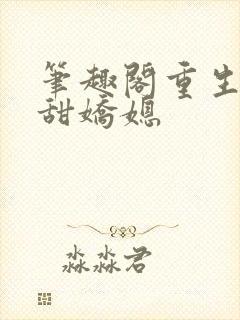 筆趣閣重生
甜嬌媳
淼淼君